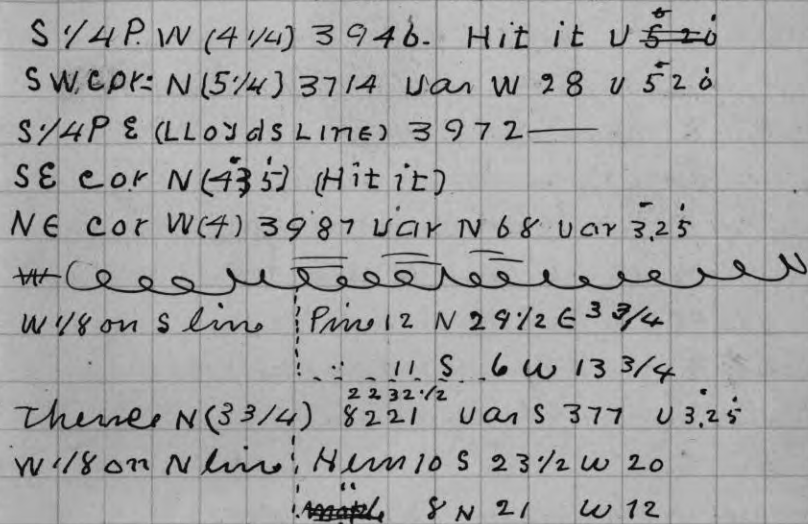 S 1/4 P. W (4 1/4) 3946. Hit it U 5°20'
SW. cor: N (5 1/4) 3714 Var W 28 U 5°20'
S 1/4 P E (LLoyds Line) 3972 —
SE cor N (4°35') (Hit it)
NE cor W (4) 3987 Var N 68 Var 3°.25'
W 1/8 on S line Pine 12 N 29 1/2 E 3 3/4
" 11 S 6 W 13 3/4
2232 1/2
Thence N (3 3/4) 8221 Var S 377 U 3°.25'
W 1/8 on N line Hem 10 S 23 1/2 W 20
" 8 N 21 W 12